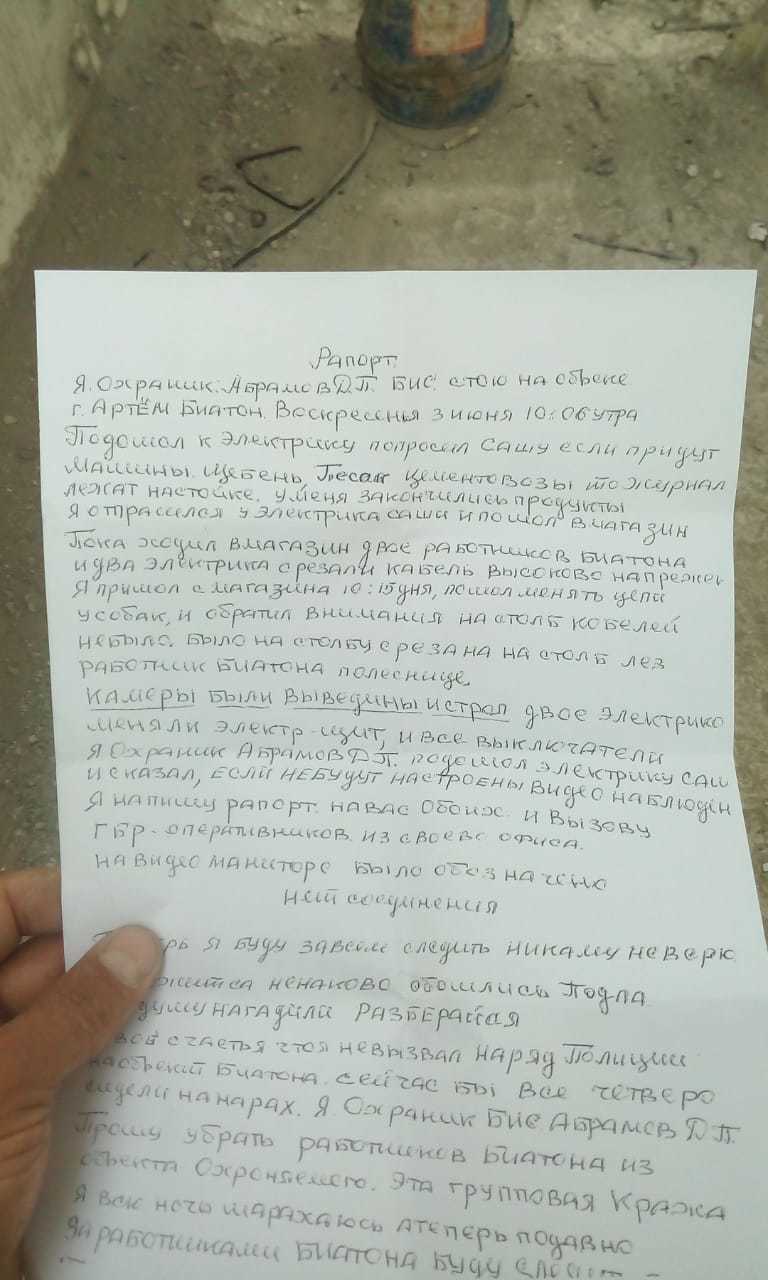 Рапорт.
Я. Охраник: Абрамов Д.П. БИС. стою на обьеке
г. Артём Биатон. Воскресенья 3 июня 10:06 утра
Подошол к электрику попросил Сашу если придут
машины. щебень, Песак цементовозы то журнал
лежат настойке. у меня закончились продукты
Я отрасился у электрика саши и пошол в магазин
Пока ходил в магазин двое работников Биатона
и два электрика срезали кабель высоково напрежен
Я пришол с магазина 10:15 дня, пошол менять цепи
у собак, и обратил внимания на столб кобелей
небыло. было на столбу срезана на столб лез
работник Биатона полеснице,
камеры были выведины из строя двое электрико
меняли электр-щит, и все выключатели
Я Охраник Абрамов Д.П. подошол электрику саш
и сказал, если небудут настроены видео наблюден
Я напишу рапорт. на вас обоих. и вызову
ГБР-оперативников. из своево офиса.
на видео маниторе было обозначено
нет соединения
Я буду завсем следить никаму неверю
ненаково обошлись Подла
думу нагадили разберайся
счастья что я невызвал наряд Полиции
Биатона. сейчас бы все четверо
сидели на нарах. Я. Охраник БИС Абрамов Д.П.
Прошу убрать работников Биатона из
обьекта Охроняемого. Эта групповая Кража
Я всю ночь шарахаюсь а теперь подавно
За работниками Биатона буду